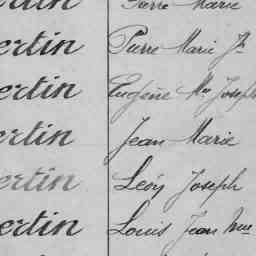 Pierre Marie
ertin Pierre Marie Jh
ertin Eugène Mie Joseph
ertin Jean Marie
ertin Léon Joseph
ertin Louis Jean Mie